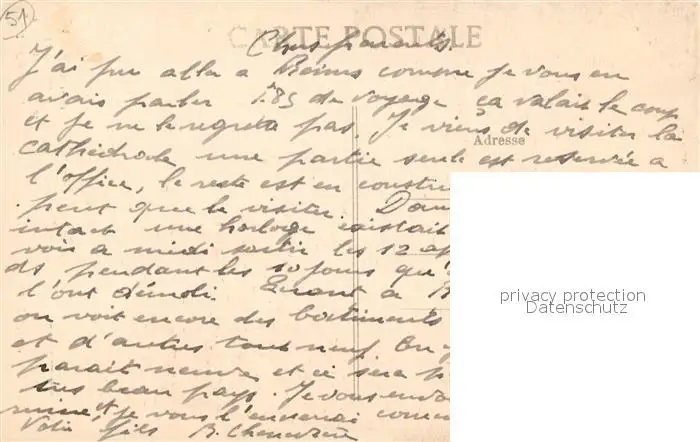 51
CARTE POSTALE
Chers parents
J'ai pu aller a Reims comme je vous en
avais parler 1.85 de voyage ça valait le coup
et je ne le regrette pas. Je viens de visiter la
Adresse
cathédrale une partie seule est reservée a
l'office, le reste est en constru
peut que le visiter. Dan
intact une horloge existait
vois a midi sortir les 12 ap
ds pendant les 10 jours qu'
l'ont démoli. Quant a R
on voit encore des batiments
et d'autres tout neuf. En
parait neuve et ce sera
tres beau pays. Je vous
mine et je vous l'enverrai comm
Votre fils B.
privacy protection
Datenschutz